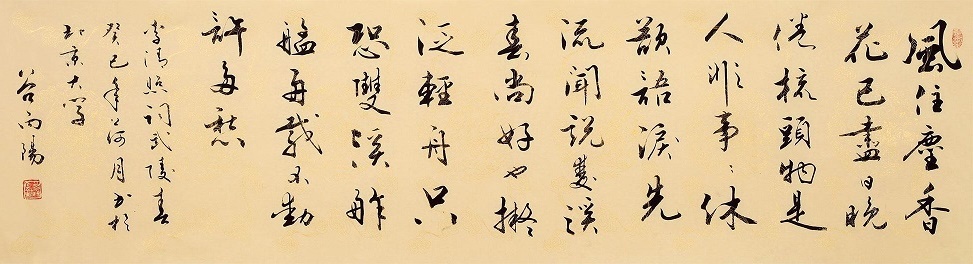 風住塵香
花已盡日晚
倦梳頭物是
人非事〻休
欲語淚先
流聞說雙溪
春尚好也擬
泛輕舟只
恐雙溪舴
艋舟載不動
許多愁
李清照詞武陵春
癸巳年荷月書於
北京大學
谷向陽